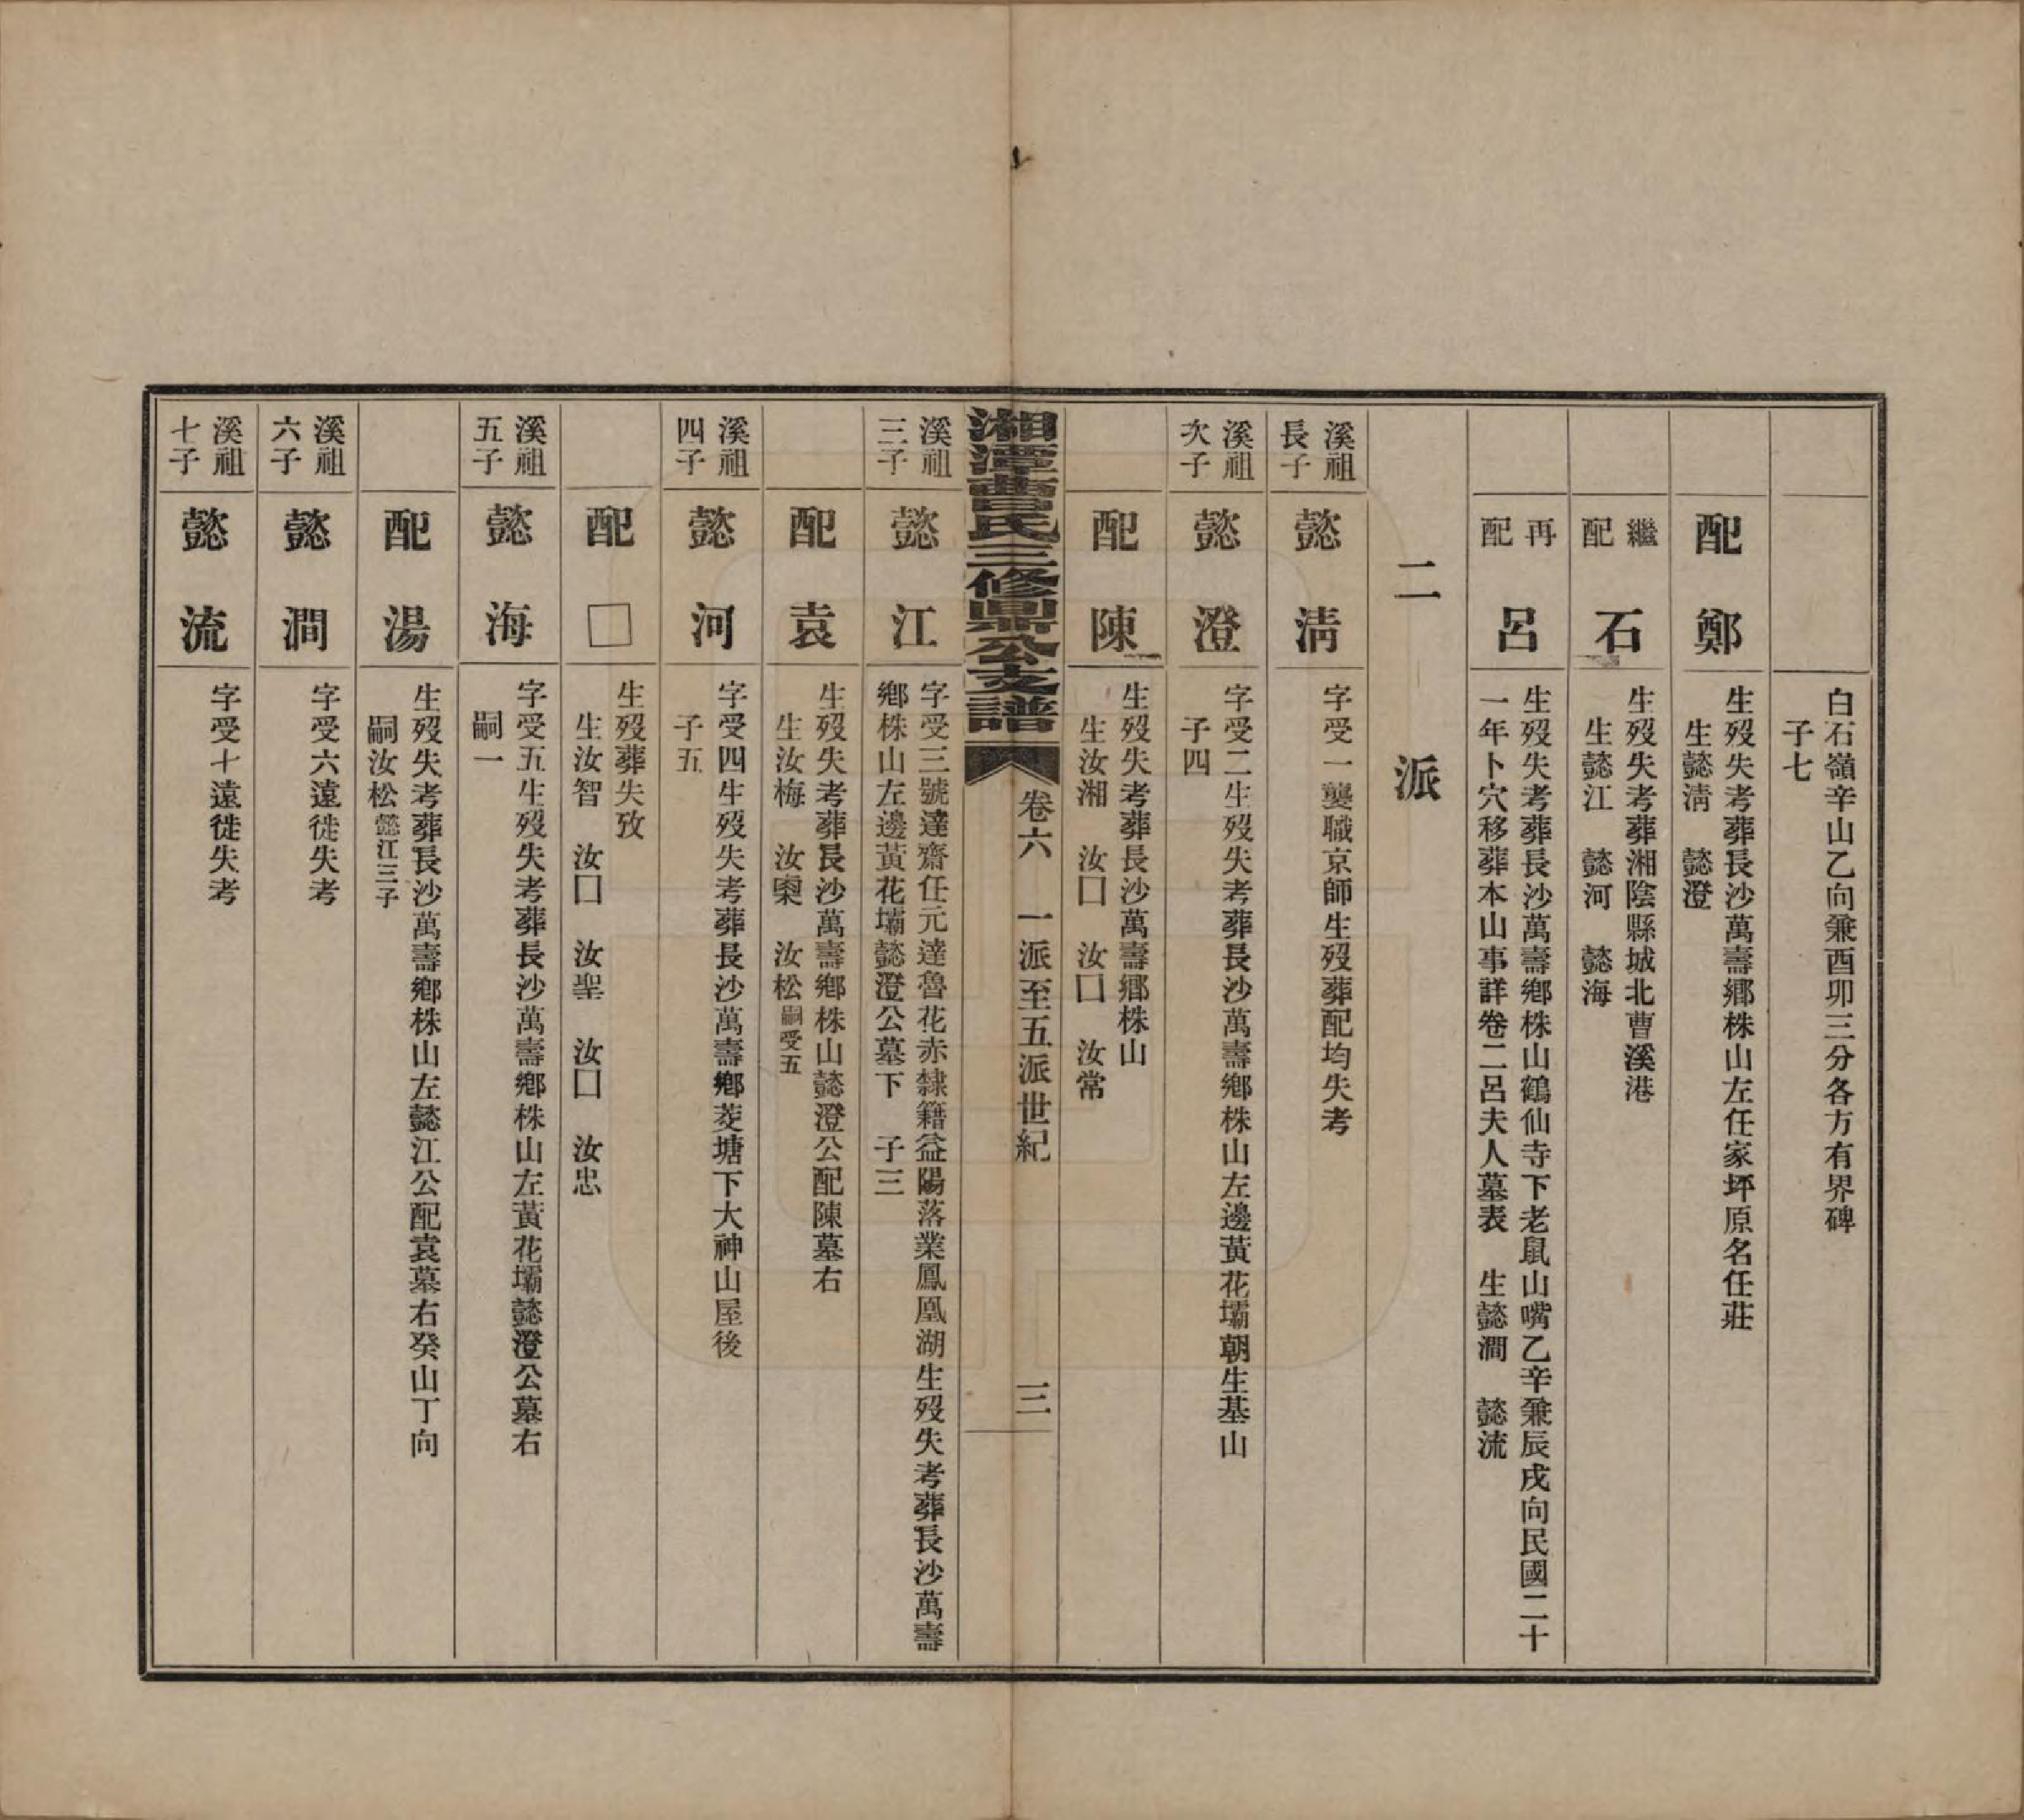 白石嶺辛山乙向兼酉卯三分各方有界碑
子七
配鄭
生歿失考葬長沙萬壽鄉株山左任家坪原名任莊
生懿淸　懿澄
繼配
石
生歿失考葬湘陰縣城北曹溪港
生懿江　懿河　懿海
再配
呂
生歿失考葬長沙萬壽鄉株山鶴仙寺下老鼠山嘴乙辛兼辰戌向民國二十
一年卜穴移葬本山事詳卷二呂夫人墓表　生懿澗　懿流
二派
溪祖長子
懿淸
字受一襲職京師生歿葬配均失考
溪祖次子
懿澄
字受二生歿失考葬長沙萬壽鄉株山左邊黃花壩朝生基山
子四
配陳
生歿失考葬長沙萬壽鄉株山
生汝湘　汝囗　汝囗　汝常
湘潭曹氏三修鼎公支譜
卷六　一派至五派世紀　三
溪祖三子
懿江
字受三號達齋任元達魯花赤隸籍益陽落業鳳凰湖生歿失考葬長沙萬壽
鄉株山左邊黃花壩懿澄公墓下　子三
配袁
生歿失考葬長沙萬壽鄉株山懿澄公配陳墓右
生汝梅　汝㮚　汝松嗣受五
溪祖四子
懿河
字受四生歿失考葬長沙萬壽鄉菱塘下大神山屋後
子五
配囗
生歿葬失攷
生汝智　汝囗　汝聖　汝囗　汝忠
溪祖五子
懿海
字受五生歿失考葬長沙萬壽鄉株山左黃花壩懿澄公墓右
嗣一
配湯
生歿失考葬長沙萬壽鄉株山左懿江公配袁墓右癸山丁向
嗣汝松懿江三子
溪祖六子
懿澗
字受六遠徙失考
溪祖七子
懿流
字受十遠徙失考